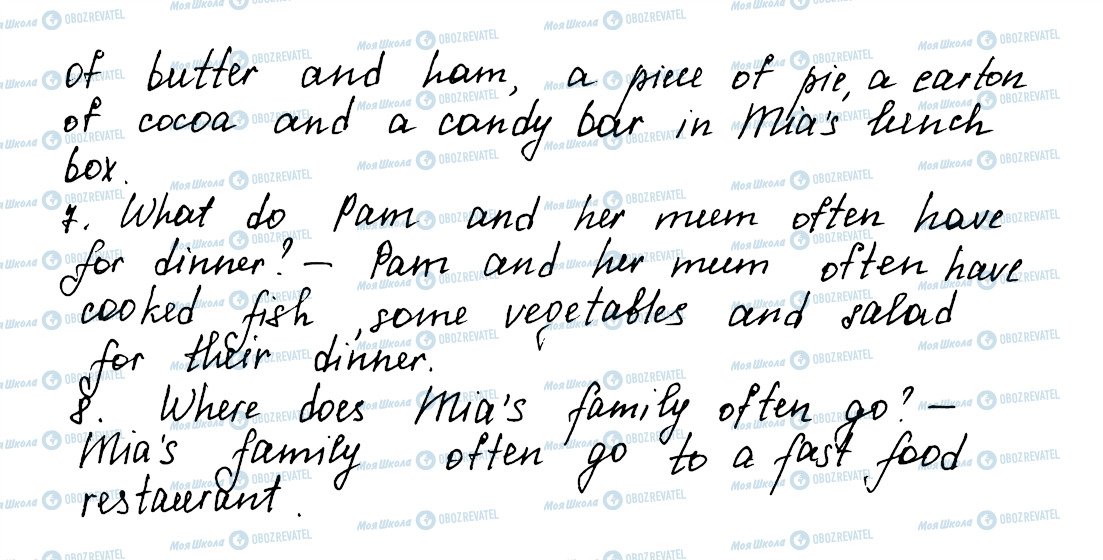 of butter and ham, a piece of pie, a carton
of cocoa and a candy bar in Mia's lunch
box.
7. What do Pam and her mum often have
for dinner? – Pam and her mum often have
cooked fish, some vegetables and salad
for their dinner.
8. Where does Mia's family often go? –
Mia's family often go to a fast food
restaurant.